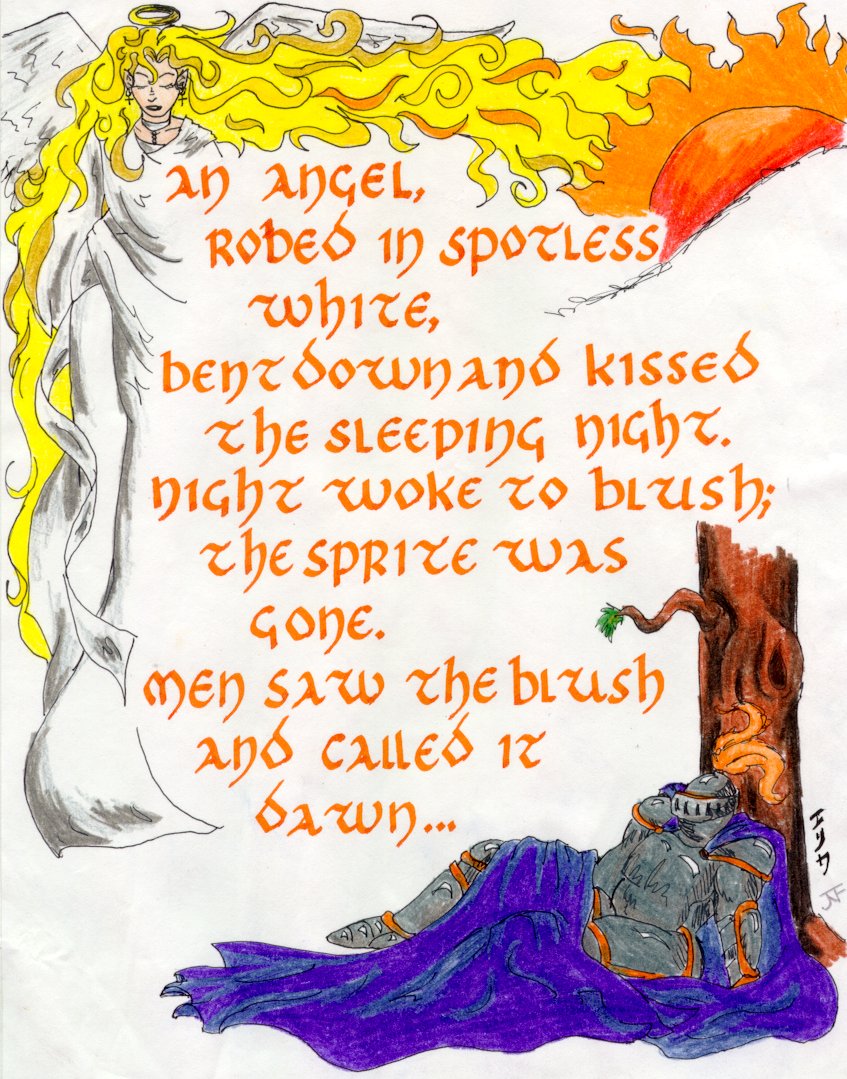 An angel,
robed in spotless
white,
bent down and kissed
the sleeping night.
night woke to blush;
the sprite was
gone.
men saw the blush
and called it
dawn...